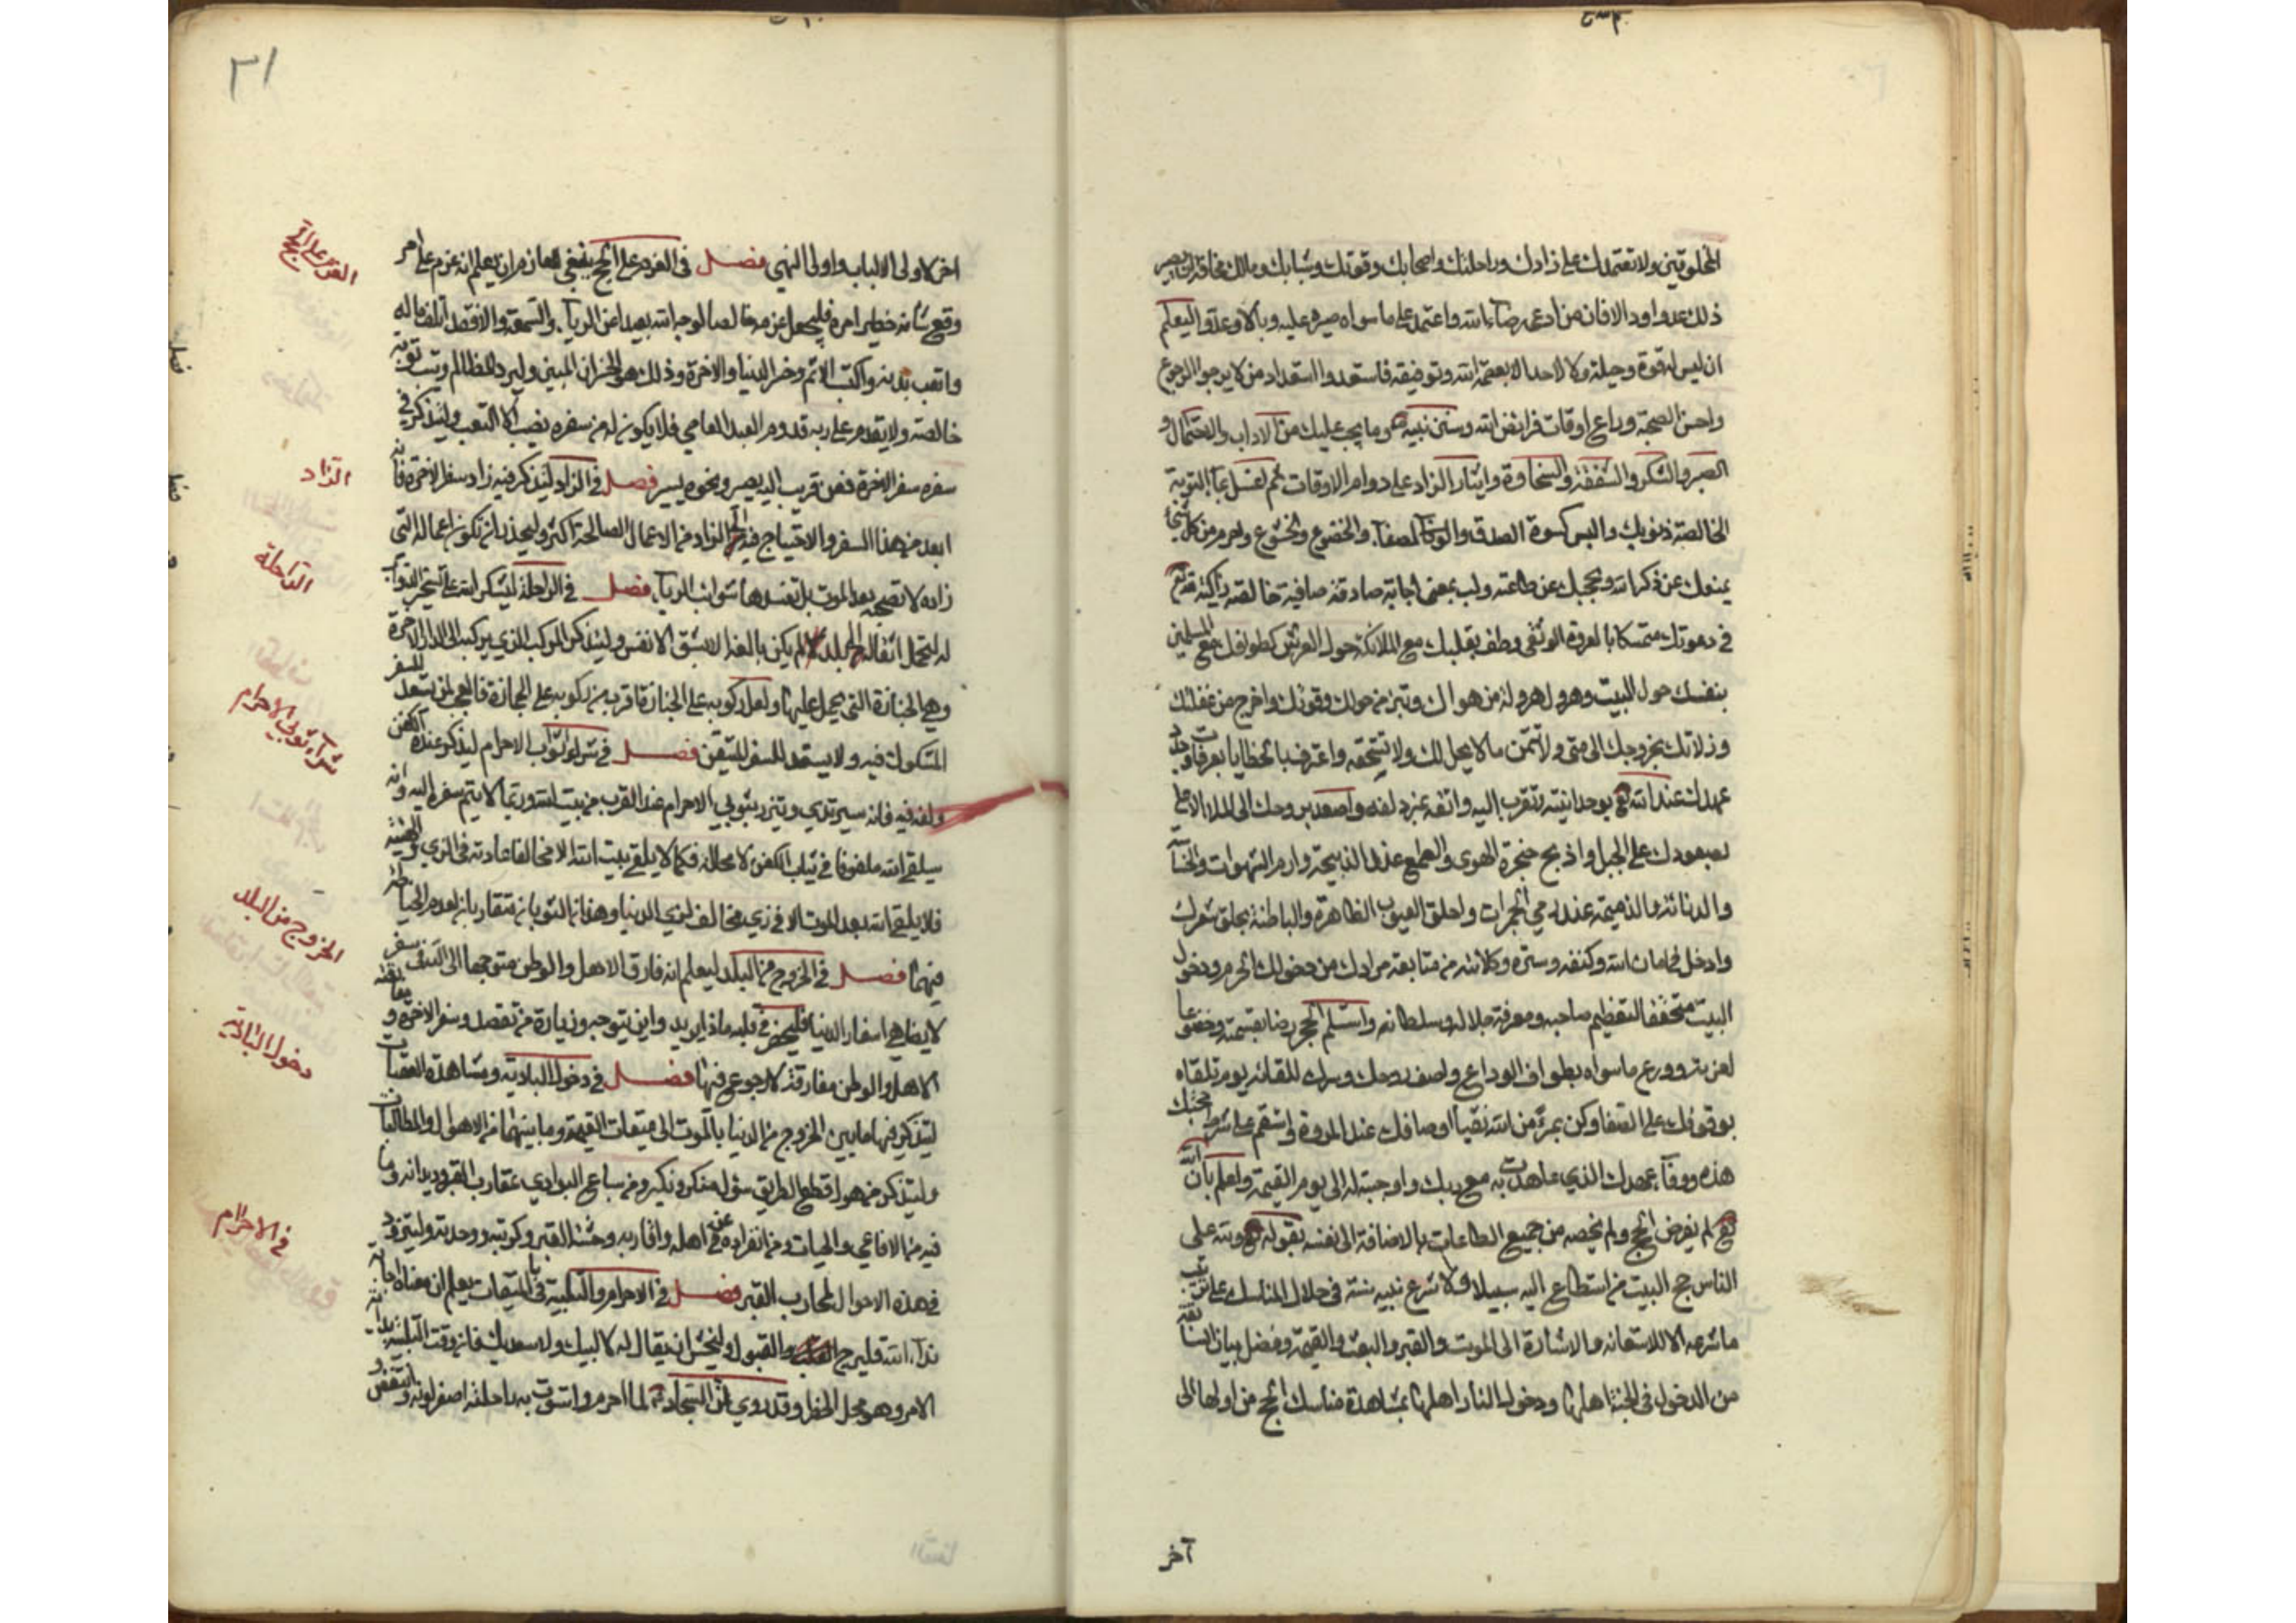 المخلوقين ولا تعتمد على زادك وراحلتك واصحابك وقوتك وشبابك ومالك مخافة ان يصير
ذلك عدوا ووبالا فان من ادعى رضاء الله واعتمد على ما سواه صيره عليه وبالا وعدوا ليعلم
ان ليس له قوة وحيلة ولا لاحد الا بعصمة الله وتوفيقه فاستعد استعداد من لا يرجو الرجوع
واحسن الصحبة وراع اوقات فرائض الله وسنن نبيه وما يجب عليك من الاداب والاحتمال و
الصبر والشكر والشفقة والسخاوة وايثار الزاد على دوام الاوقات ثم اغسل بماء التوبة
الخالصة ذنوبك والبس كسوة الصدق والصفاء والخضوع والخشوع واحرم من كل شئ
يمنعك عن ذكر الله ويحجبك عن طاعته ولب بمعنى اجابة صادقة صافية خالصة زاكية لله تع
في دعوتك متمسكا بالعروة الوثقى وطف بقلبك مع الملائكة حول العرش كطوافك مع المسلمين
بنفسك حول البيت وهرول هرولة من هواك وتبر من حولك وقوتك واخرج من غفلتك
وزلاتك بخروجك الى منى ولا تتمن ما لا يحل لك ولا تستحقه واعترف بالخطايا بعرفات وجدد
عهدك عند الله تع بوحدانيته وتقرب اليه واتقه بمزدلفه واصعد بروحك الى الملا الاعلى
بصعودك على الجبل واذبح حنجرة الهوى والطمع عند الذبيحة وارم الشهوات والخساسة
والدنائة والذميمة عند رمي الجمرات واحلق العيوب الظاهرة والباطنة بحلق شعرك
وادخل في امان الله وكنفه وستره وكلائته من متابعة مرادك من دخولك الحرم ودخول
البيت متحققا لتعظيم صاحبه ومعرفة جلاله وسلطانه واستلم الحجر رضا بقسمته وخضوعا
لعزته وودع ماسواه بطواف الوداع واصف روحك وسرك للقائه يوم تلقاه
بوقوفك على الصفا وكن بمرئ من الله نقيا اوصافك عند المروة واستقم على شرط حجتك
هذه ووفاء عهدك الذي عاهدت به مع ربك واوجبته له الى يوم القيمة واعلم بان الله
تع لم يفرض الحج ولم يخصه من جميع الطاعات بالاضافة الى نفسه بقوله تع ولله على
الناس حج البيت من استطاع اليه سبيلا ولا شرع نبيه سنة في خلال المناسك على ترتيب
ما شرعه الا للاستعانة والاشارة الى الموت والقبر والبعث والقيمة وفصل بيان السابقة
من الدخول في الجنة اهلها ودخول النار اهلها بمشاهدة مناسك الحج من اولها الى
آخر
٣١
اخرها لاولى الالباب واولى النهى فصل في العزم على الحج ينبغي للعازم ان يعلم انه عزم على امر
رفيع شانه خطير امره فليجعل عزمه خالصا لوجه الله بعيدا عن الرياء والسمعة والا فقد اتلف ماله
واتعب بدنه واكتسب الاثم وخسر الدنيا والاخرة وذلك هو الخسران المبين وليرد المظالم ويتب توبة
خالصة ولا يقدم على ربه قدوم العبد العاصي فلا يكون له من سفره نصيب الا التعب وليتذكر في
سفره سفر الاخرة فعن قريب اليه يصير ونحوه يسير فصل في الزاد ليتذكر فيه زاد سفر الاخرة فانه
ابعد من هذا السفر والاحتياج فيه الى الزاد من الاعمال الصالحة اكثر وليحذر ان تكون اعماله التي
زاده لا تصحبه بعد الموت بل تفسدها شوائب الرياء فصل في الراحلة ليشكر الله على تسخير الدواب
له لتحمل اثقاله الى بلد لم يكن بالغه الا بشق الانفس وليتذكر المركب الذي يركبه الى الدار الاخرة
وهي الجنازة التي يحمل عليها ولعل ركوبه على الجنازة اقرب من ركوبه على الجمازة فالعجب لمن يستعد للسفر
المشكوك فيه ولا يستعد للسفر المتيقن فصل في شراء ثوبي الاحرام ليتذكر عنده الكفن
ولفه فيه فانه سيرتدي ويتزر بثوبي الاحرام عند القرب من بيت الله وربما لا يتم سفره اليه وانه
سيلقى الله ملفوفا في ثياب الكفن لا محالة فكما لا يلقى بيت الله الا مخالفا عادته في الزي والهيئة
فلا يلقى الله بعد الموت الا في زي مخالف لزي الدنيا وهذان الثوبان متقاربان لعدم الخياطة
فيهما فصل في الخروج من البلد ليعلم انه فارق الاهل والوطن متوجها الى الله في سفر
لا يضاهي اسفار الدنيا فليحضر في قلبه ماذا يريد واين يتوجه وزيارة من تقصد وسفر الاخرة ومفارقة
الاهل والوطن مفارقة لا رجوع فيها فصل في دخول البادية ومشاهدة العقبات
ليتذكر فيها ما بين الخروج من الدنيا بالموت الى ميقات القيمة وما بينهما من الاهوال والمطالبات
وليتذكر من هول قطاع الطريق سؤال منكر ونكير ومن سباع البوادي عقارب القبر وديدانه وما
فيه من الافاعي والحيات ومن انفراده عن اهله واقاربه وحشة القبر وكربته ووحدته وليتزود
في هذه الاحوال لمخاوف القبر فصل في الاحرام والتلبية في الميقات يعلم ان معناه اجابة
نداء الله فليرج القبول وليخش ان يقال له لا لبيك ولا سعديك فان وقت التلبية بداية
الامر وهو محل الخطر وقد روي ان السجاد لما احرم واستوت به راحلته اصفر لونه وانتفض
العزم على الحج
الزاد
الراحلة
شراء ثوبي الاحرام
الخروج من البلد
دخول البادية
في الاحرام